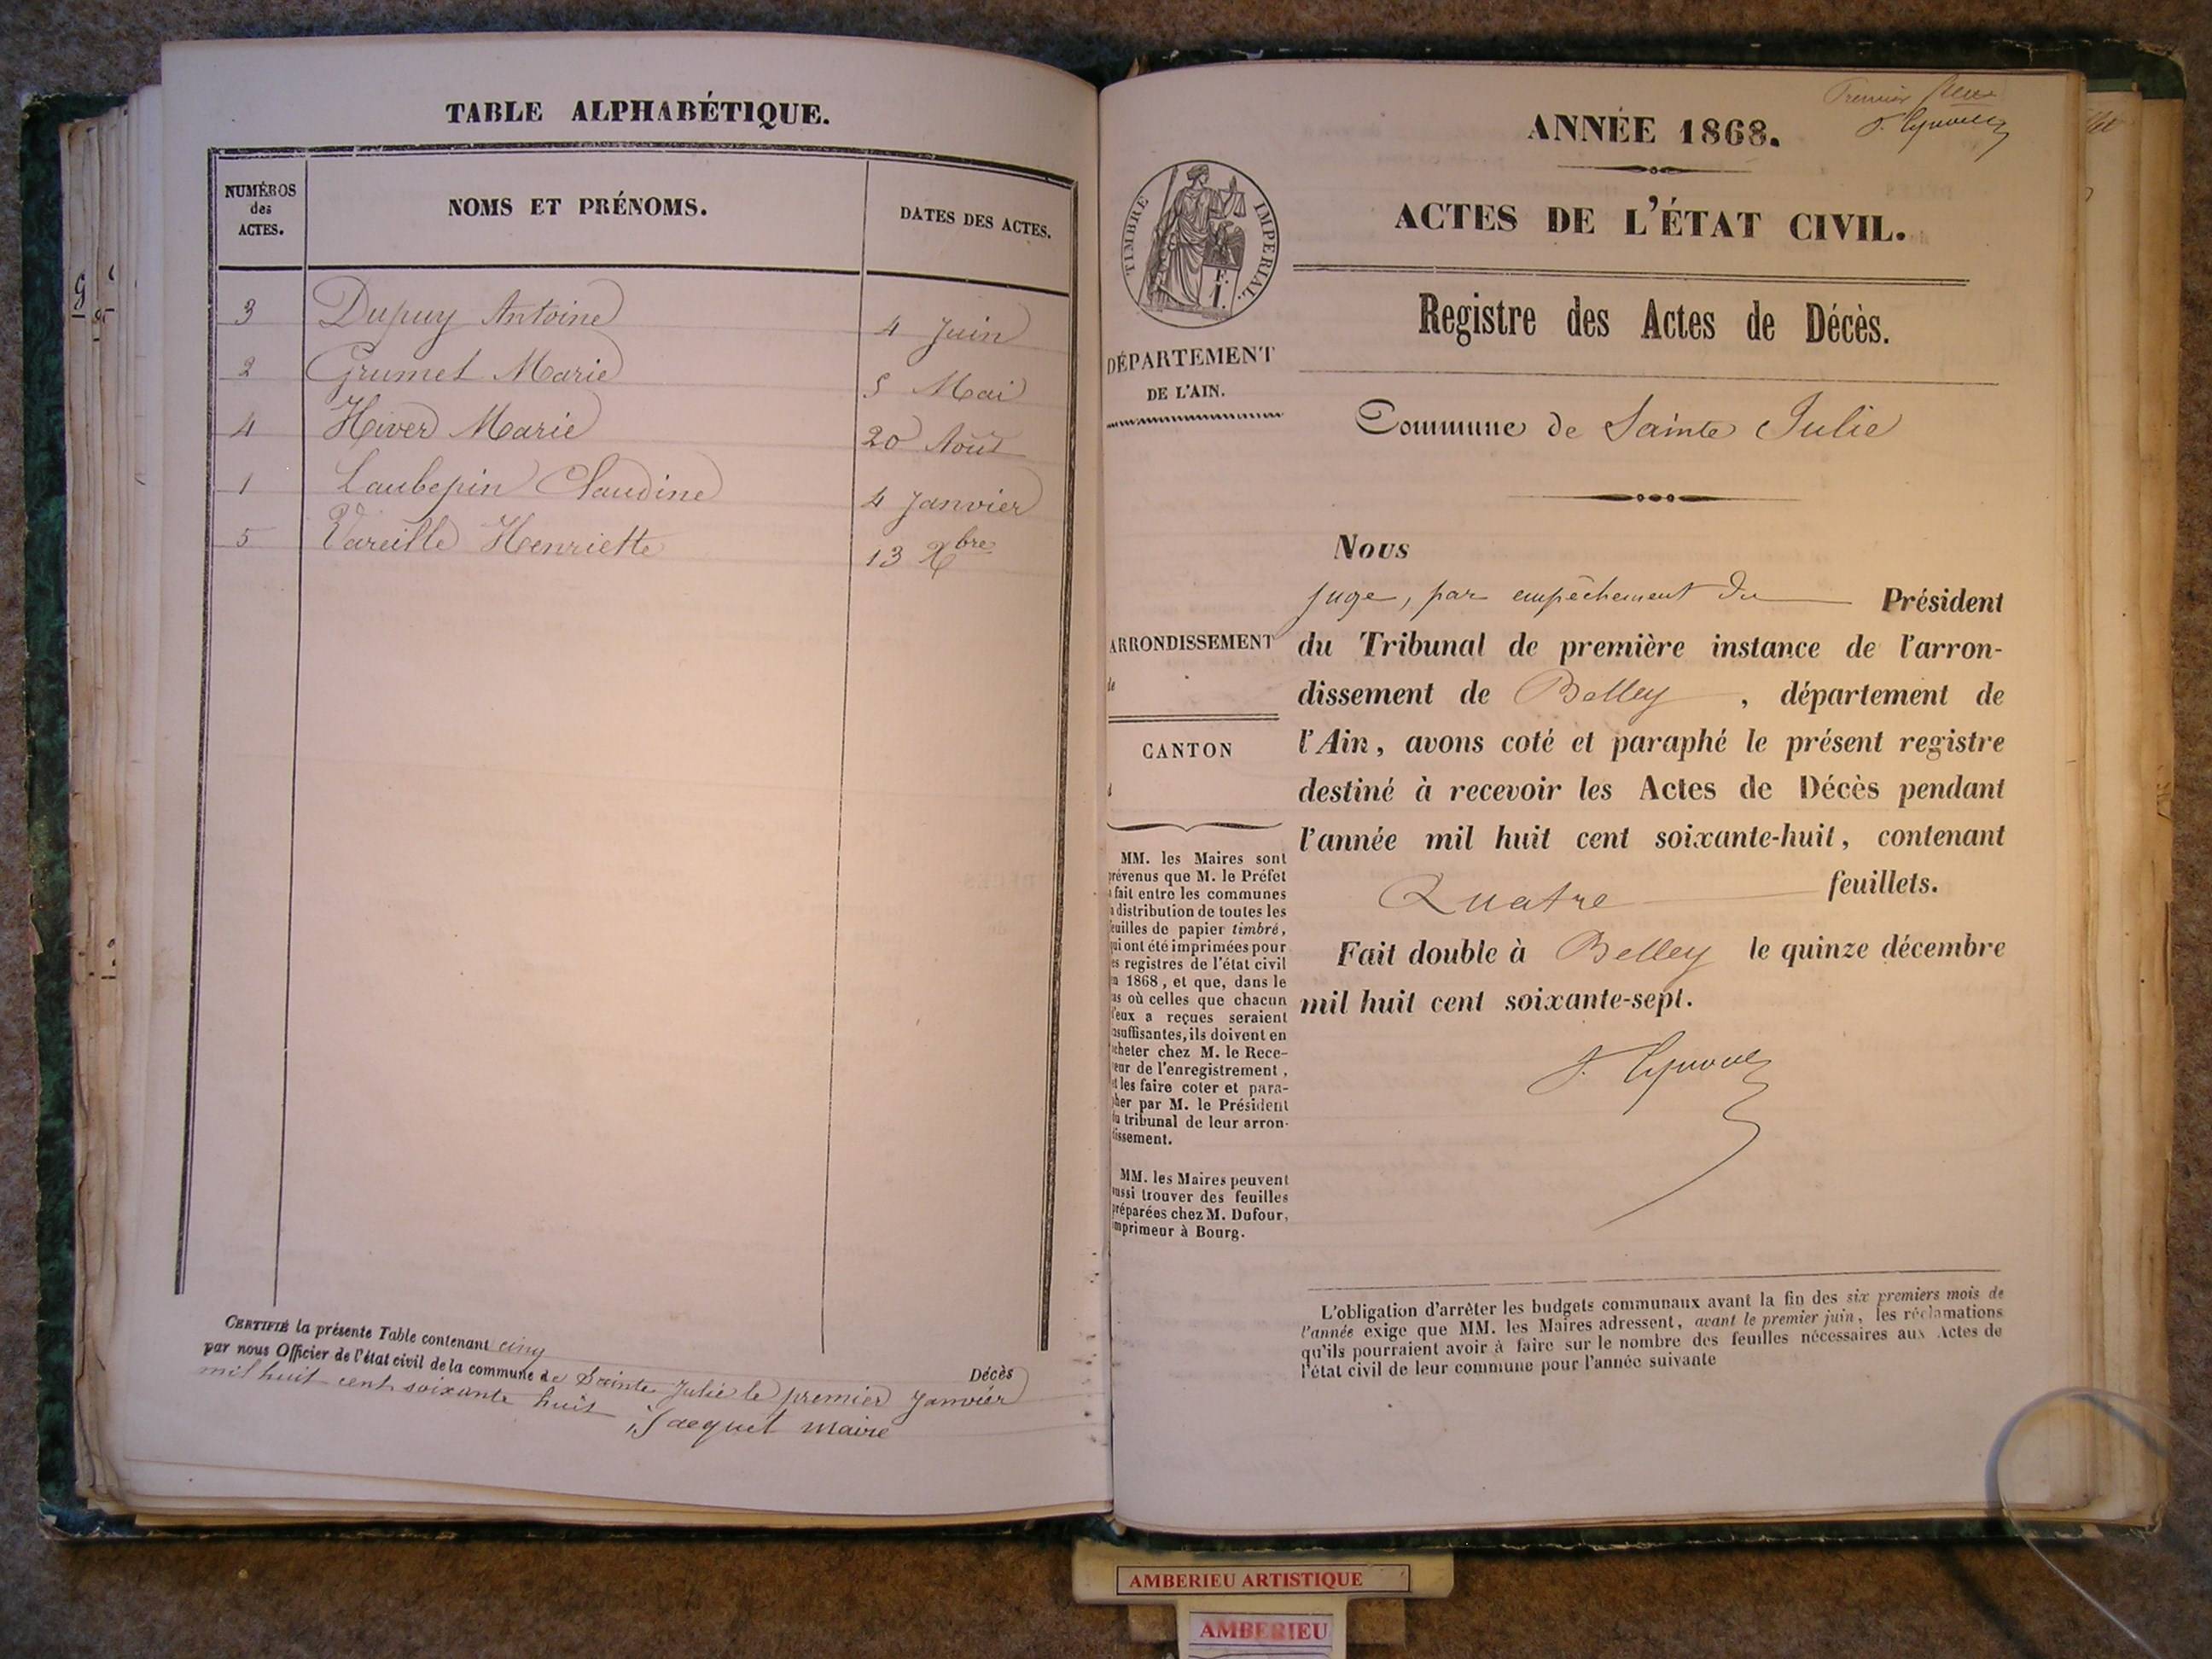 TABLE ALPHABÉTIQUE.
NUMÉROS
des
ACTES.
NOMS ET PRÉNOMS.
DATES DES ACTES.
3 Dupuy Antoine 4 Juin
2 Grumet Marie 5 Mai
4 Hiver Marie 20 Août
1 Laubepin Claudine 4 Janvier
5 Vareille Henriette 13 Xbre
CERTIFIÉ la présente Table contenant cinq Décès
par nous Officier de l'état civil de la commune de Sainte Julie le premier Janvier
mil huit cent soixante huit
Jacquet maire
Premier
ANNÉE 1868.
ACTES DE L'ÉTAT CIVIL.
TIMBRE IMPÉRIAL.
DÉPARTEMENT
DE L'AIN.
Registre des Actes de Décès.
Commune de Sainte Julie
Nous
juge, par empêchement du Président
du Tribunal de première instance de l'arron-
dissement de Belley, département de
l'Ain, avons coté et paraphé le présent registre
destiné à recevoir les Actes de Décès pendant
l'année mil huit cent soixante-huit, contenant
Quatre feuillets.
Fait double à Belley le quinze décembre
mil huit cent soixante-sept.
ARRONDISSEMENT
de
CANTON
d
MM. les Maires sont
prévenus que M. le Préfet
a fait entre les communes
la distribution de toutes les
feuilles de papier timbré,
qui ont été imprimées pour
les registres de l'état civil
en 1868, et que, dans le
cas où celles que chacun
d'eux a reçues seraient
insuffisantes, ils doivent en
acheter chez M. le Rece-
veur de l'enregistrement,
et les faire coter et para-
pher par M. le Président
du tribunal de leur arron-
dissement.
MM. les Maires peuvent
aussi trouver des feuilles
préparées chez M. Dufour,
imprimeur à Bourg.
L'obligation d'arrêter les budgets communaux avant la fin des six premiers mois de
l'année exige que MM. les Maires adressent, avant le premier juin, les réclamations
qu'ils pourraient avoir à faire sur le nombre des feuilles nécessaires aux Actes de
l'état civil de leur commune pour l'année suivante
AMBERIEU ARTISTIQUE
AMBERIEU